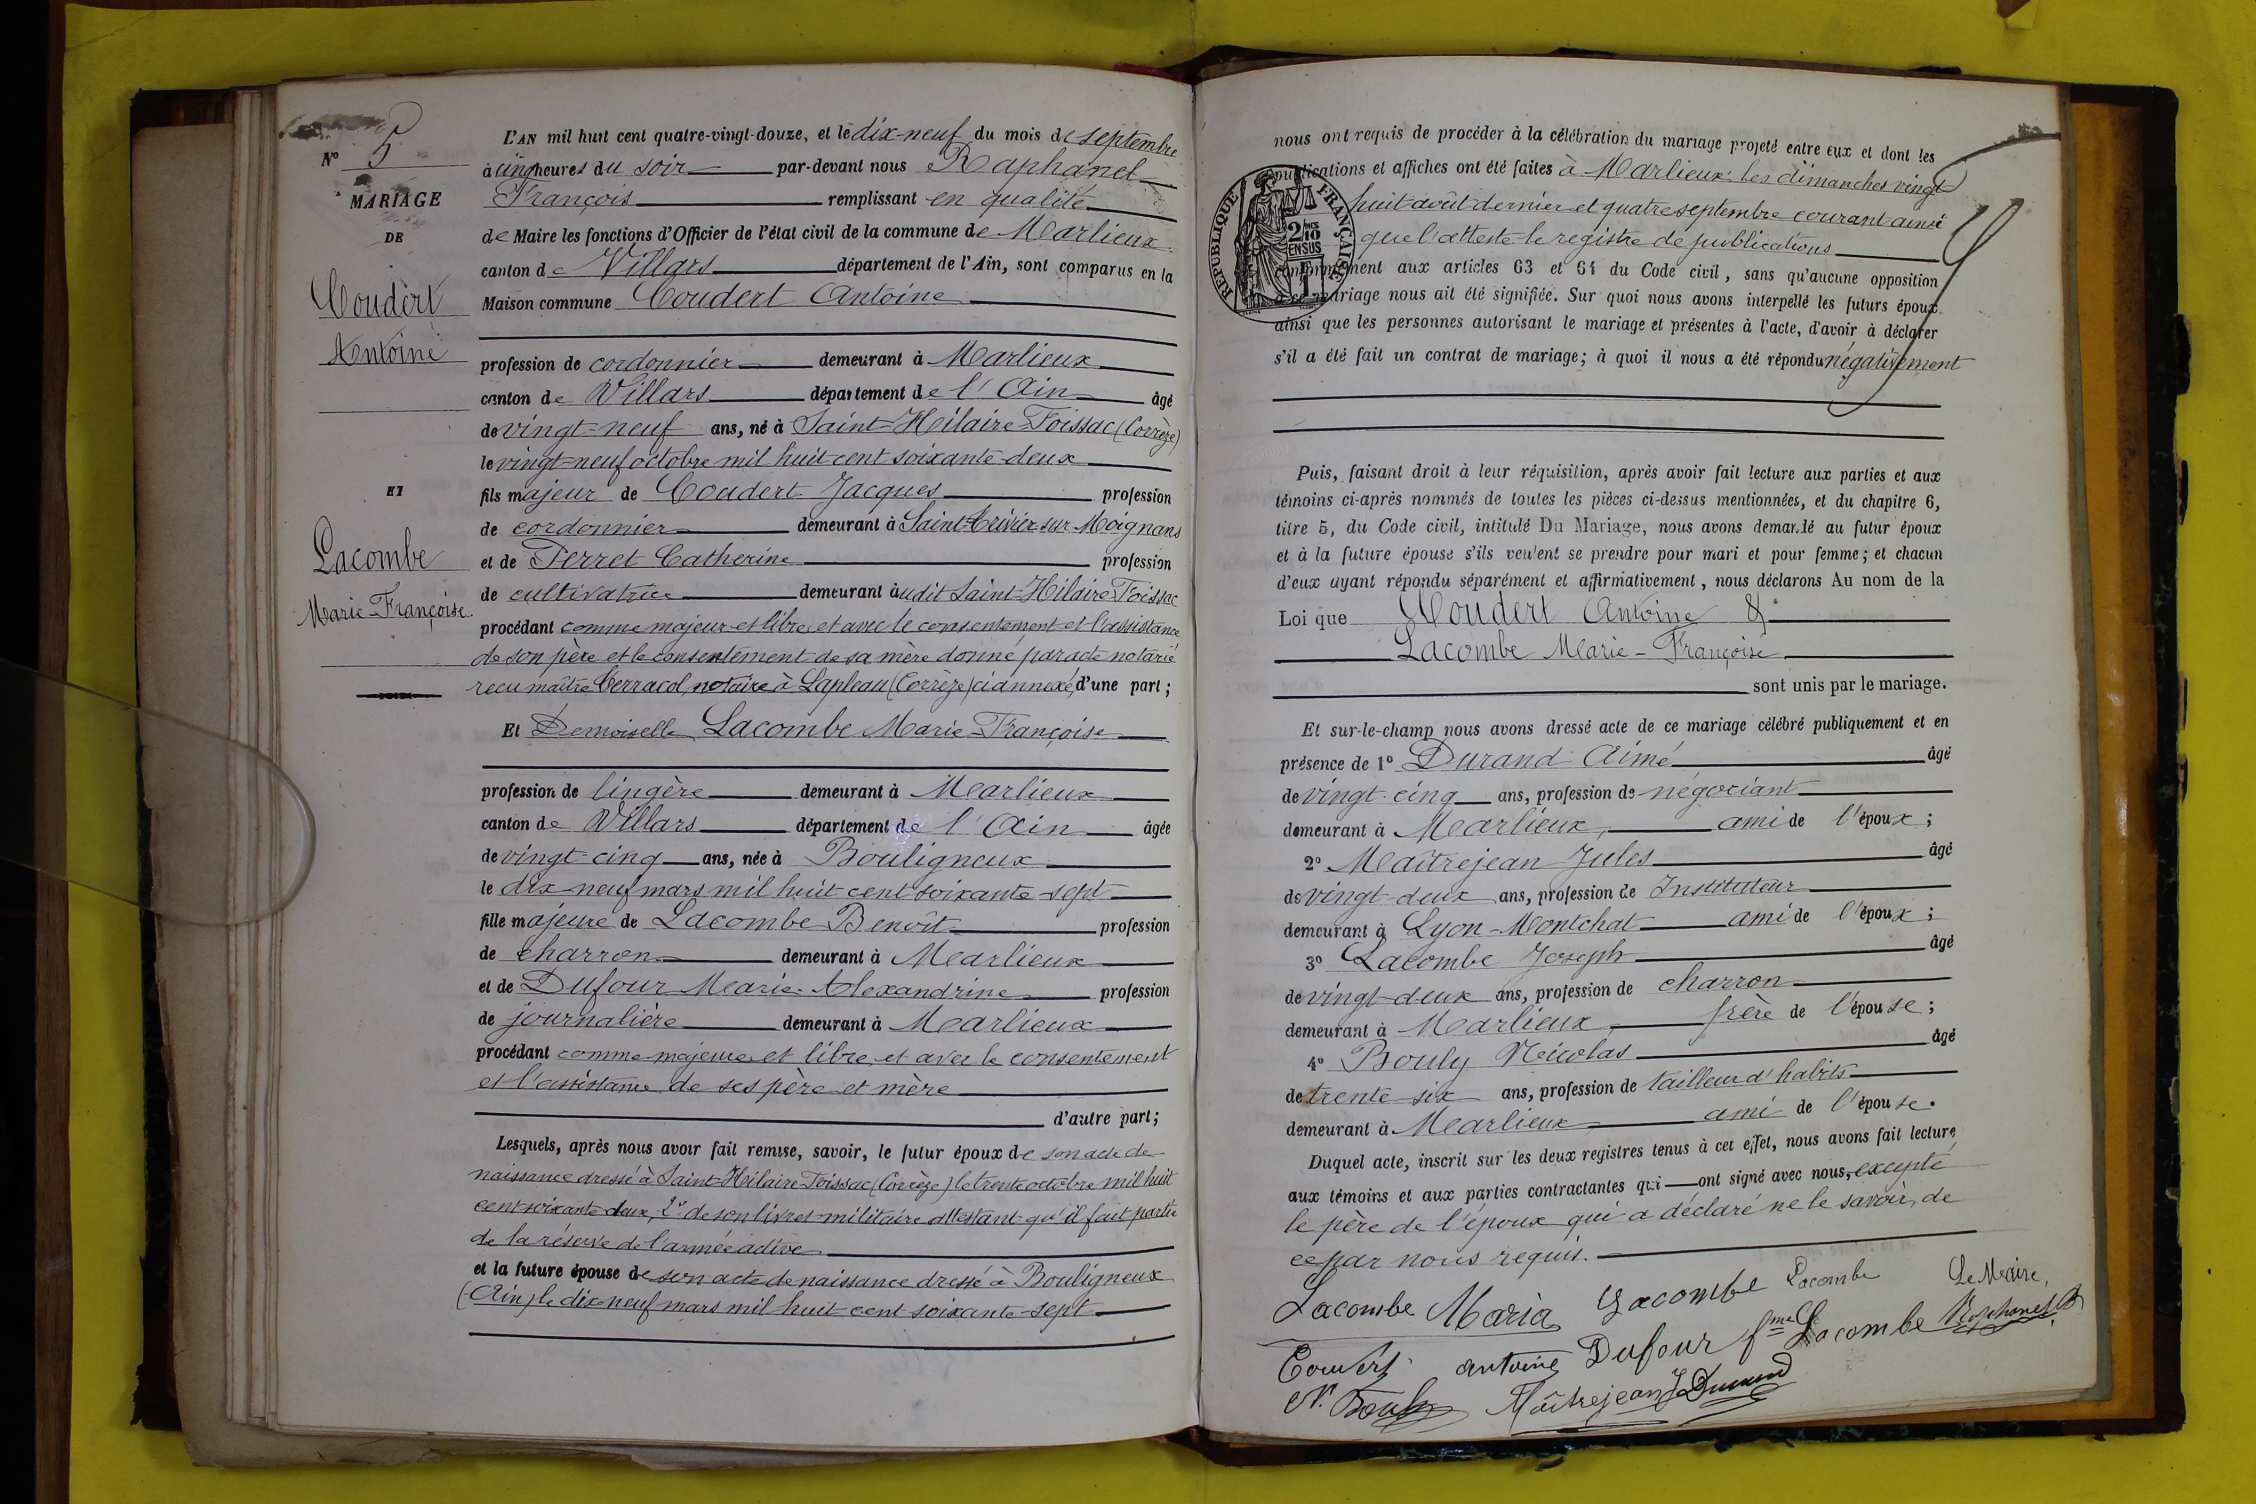 N° 5
MARIAGE
DE
Coudert
Antoine
ET
Lacombe
Marie-Françoise
L'AN mil huit cent quatre-vingt-douze, et le dix-neuf du mois de septembre
à cinq heures du soir par-devant nous Raphanel
François remplissant en qualité
de Maire les fonctions d'Officier de l'état civil de la commune de Marlieux
canton de Villars département de l'Ain, sont comparus en la
Maison commune Coudert Antoine
profession de cordonnier demeurant à Marlieux
canton de Villars département de l'Ain âgé
de vingt-neuf ans, né à Saint-Hilaire-Foissac (Corrèze)
le vingt-neuf octobre mil huit cent soixante-deux
fils majeur de Coudert Jacques profession
de cordonnier demeurant à Saint-Trivier-sur-Moignans
et de Ferret Catherine profession
de cultivatrice demeurant audit Saint-Hilaire-Foissac
procédant comme majeur et libre et avec le consentement et l'assistance
de son père et le consentement de sa mère donné par acte notarié
reçu maître Cerracol, notaire à Lapleau (Corrèze) ci annexé, d'une part ;
Et Demoiselle Lacombe Marie-Françoise
profession de lingère demeurant à Marlieux
canton de Villars département de l'Ain âgée
de vingt-cinq ans, née à Bouligneux
le dix-neuf mars mil huit cent soixante-sept
fille majeure de Lacombe Benoît profession
de charron demeurant à Marlieux
et de Dufour Marie-Alexandrine profession
de journalière demeurant à Marlieux
procédant comme majeure et libre et avec le consentement
et l'assistance de ses père et mère
d'autre part ;
Lesquels, après nous avoir fait remise, savoir, le futur époux de son acte de
naissance dressé à Saint-Hilaire-Foissac (Corrèze) le trente octobre mil huit
cent soixante-deux, 2° de son livret militaire attestant qu'il fait partie
de la réserve de l'armée active
et la future épouse de son acte de naissance dressé à Bouligneux
(Ain) le dix-neuf mars mil huit cent soixante-sept
nous ont requis de procéder à la célébration du mariage projeté entre eux et dont les
publications et affiches ont été faites à Marlieux les dimanches vingt
huit août dernier et quatre septembre courant ainsi
que l'atteste le registre de publications
conformément aux articles 63 et 64 du Code civil, sans qu'aucune opposition
à ce mariage nous ait été signifiée. Sur quoi nous avons interpellé les futurs époux
ainsi que les personnes autorisant le mariage et présentes à l'acte, d'avoir à déclarer
s'il a été fait un contrat de mariage ; à quoi il nous a été répondu négativement
RÉPUBLIQUE FRANÇAISE
2/10 EN SUS
Puis, faisant droit à leur réquisition, après avoir fait lecture aux parties et aux
témoins ci-après nommés de toutes les pièces ci-dessus mentionnées, et du chapitre 6,
titre 5, du Code civil, intitulé Du Mariage, nous avons demandé au futur époux
et à la future épouse s'ils veulent se prendre pour mari et pour femme ; et chacun
d'eux ayant répondu séparément et affirmativement, nous déclarons Au nom de la
Loi que Coudert Antoine &
Lacombe Marie-Françoise
sont unis par le mariage.
Et sur-le-champ nous avons dressé acte de ce mariage célébré publiquement et en
présence de 1° Durand Aimé âgé
de vingt-cinq ans, profession de négociant
demeurant à Marlieux, ami de l'époux ;
2° Maîtrejean Jules âgé
de vingt-deux ans, profession de Instituteur
demeurant à Lyon-Montchat ami de l'époux ;
3° Lacombe Joseph âgé
de vingt-deux ans, profession de charron
demeurant à Marlieux, frère de l'épouse ;
4° Bouly Nicolas âgé
de trente-six ans, profession de tailleur d'habits
demeurant à Marlieux ami de l'épouse.
Duquel acte, inscrit sur les deux registres tenus à cet effet, nous avons fait lecture
aux témoins et aux parties contractantes qui ont signé avec nous, excepté
le père de l'époux qui a déclaré ne le savoir, de
ce par nous requis.
Lacombe Maria Lacombe Lacombe Le Maire,
Coudert antoine Dufour fme Lacombe Raphanel
N. Bouly Maîtrejean J Durand